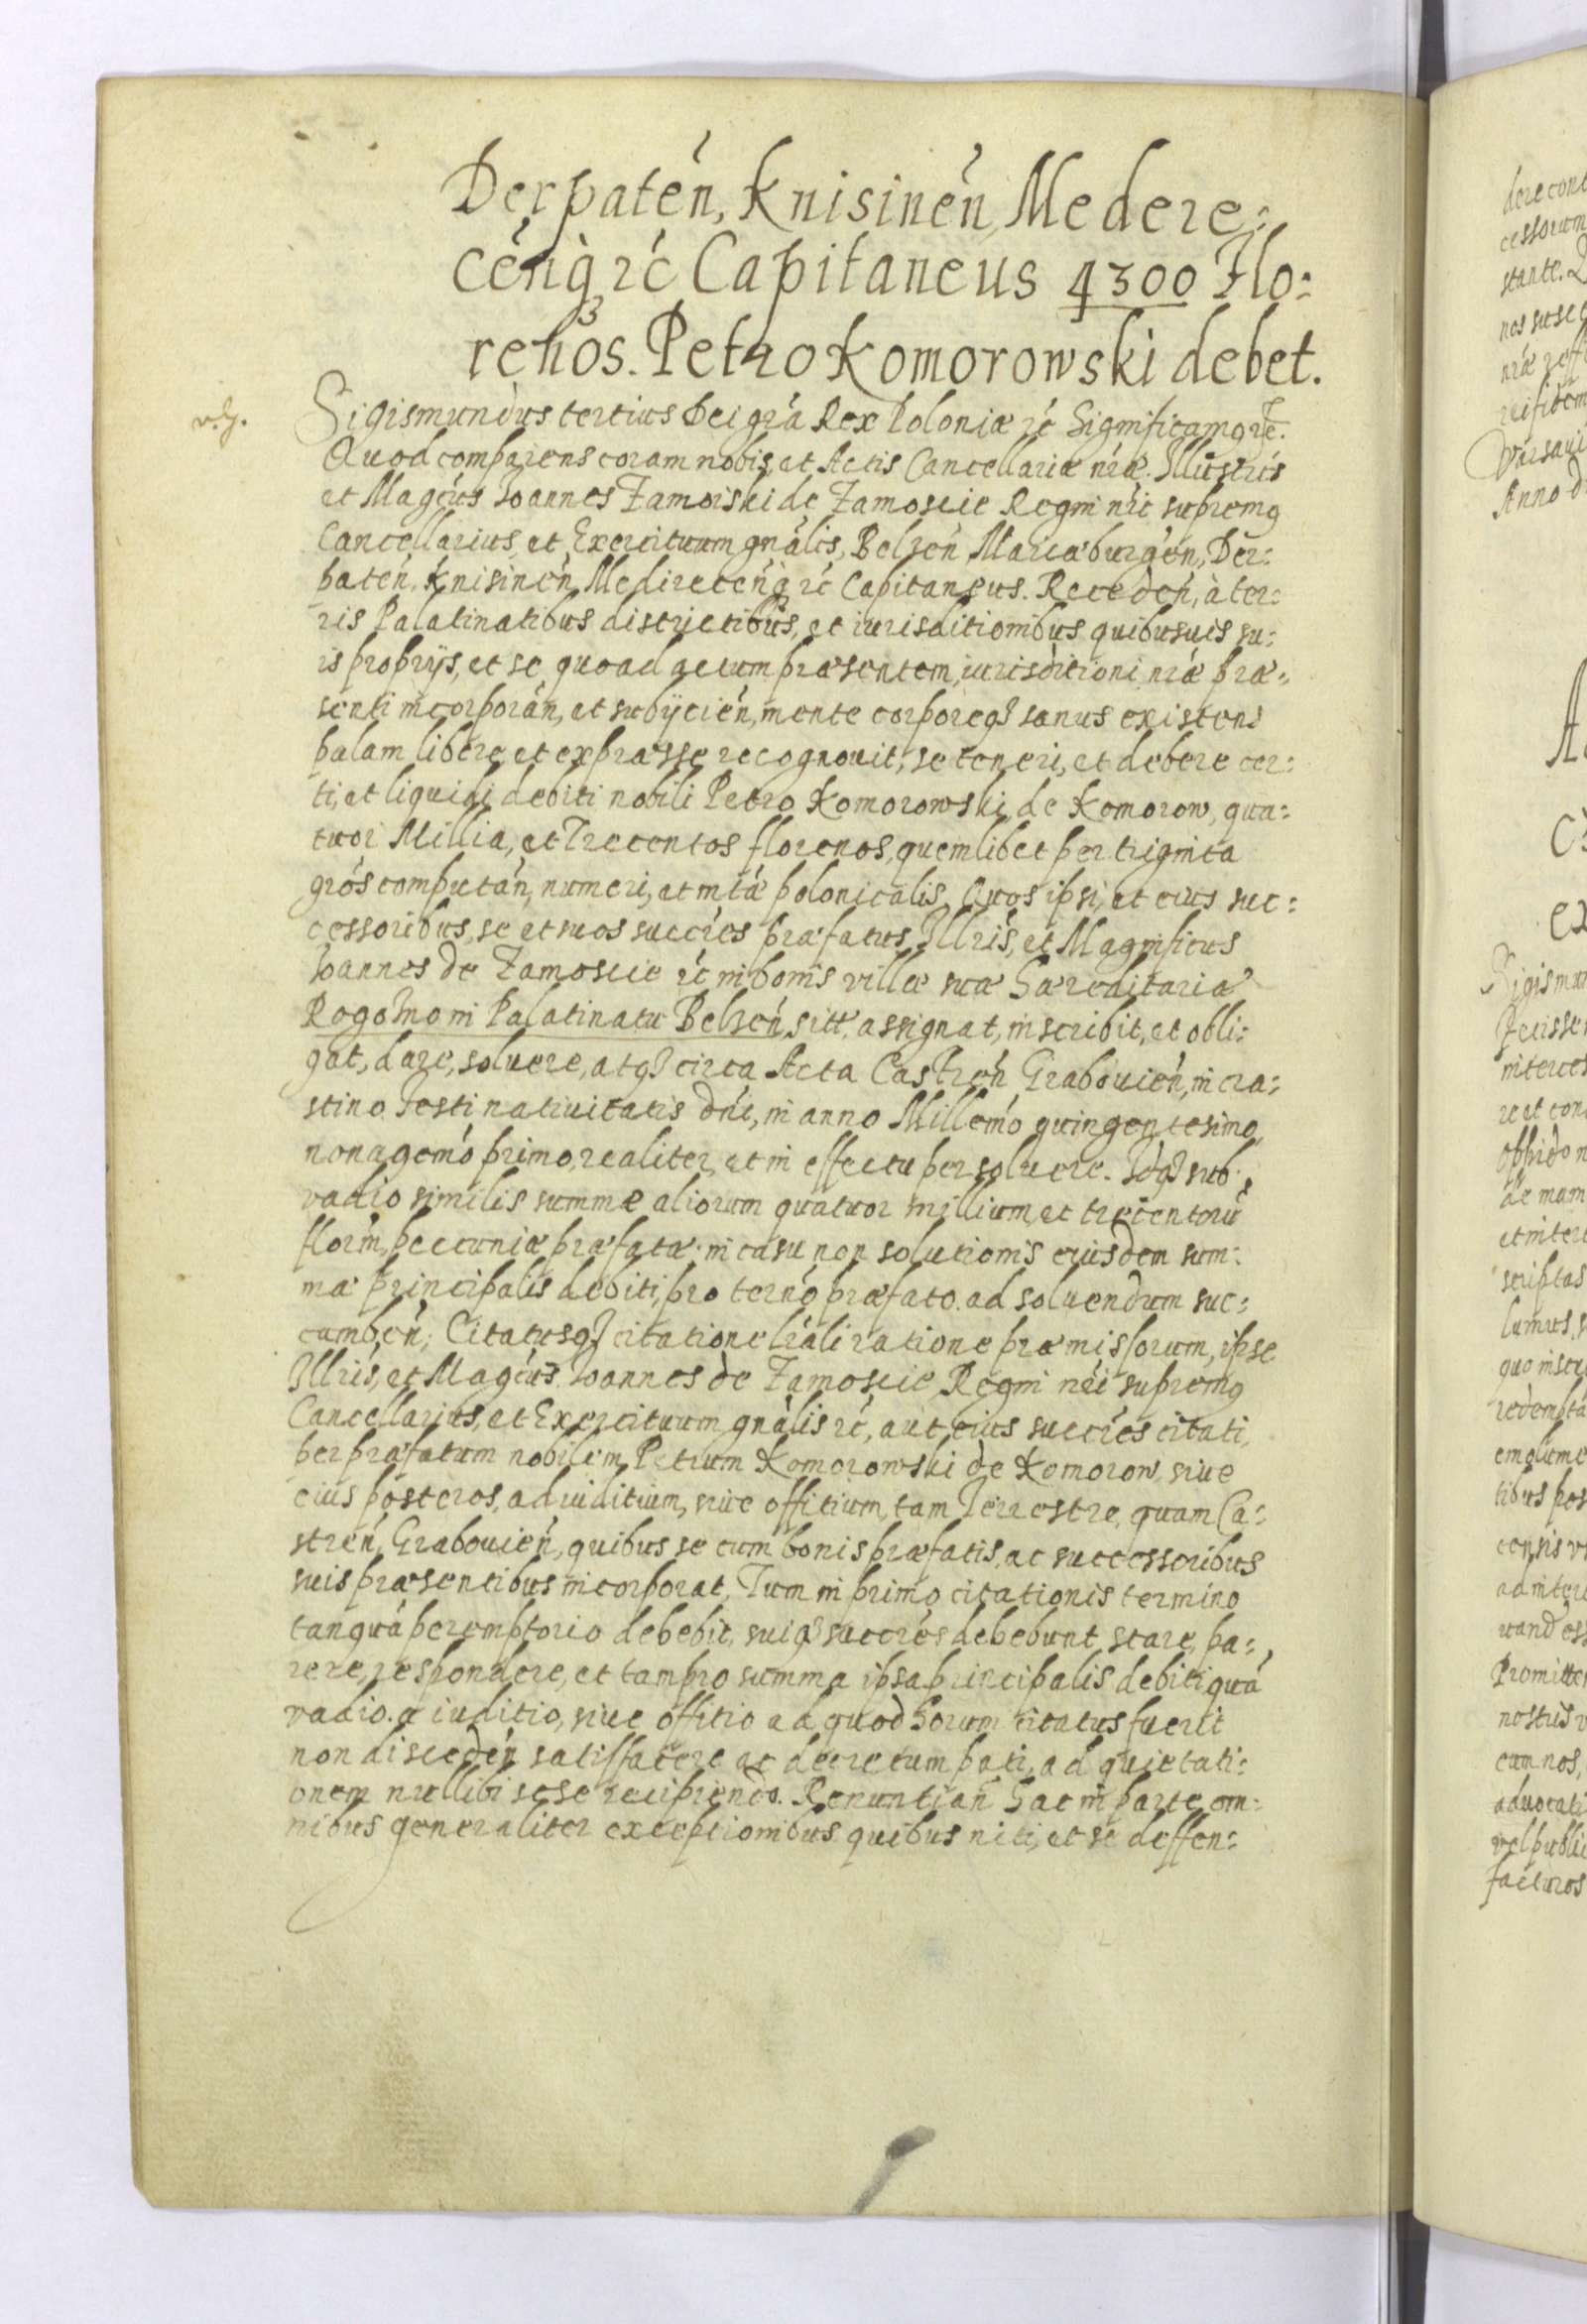 Derpatén, Knisinén, Medere:
céńq̃ rć Capitaneus 4300 Flo:
renos. Petro Komorowski debet.
v. g.
Sigismundus tertius Dei grá Rex Poloniæ rć Significamq rć.
Quod comparens coram nobis, et Actis Cancellariæ nræ. Illustris
et Magcus Joannes Zamoiski de Zamoscie Regni nri supremq
Cancellarius, et Exercituum gnális, Belzén Mariæburgén, Der:
patén, Knisinén, Medirecenq̃ rć Capitaneus. Recedén, à ter:
ris Palatinatibus districtibus, et iurisditionibus quibusuis su:
is proprijs, et se quoad actum præsentem, iurisditioni nræ præ:
senti incorporán, et subijcién, mente corporeq3 sanus existens
palam libere et expræsse recognouit, se teneri, et debere cer:
ti, et liquidi debiti nobili Petro Komorowski, de Komorow, qua:
tuor Millia, et Trecentos florenos, quemlibet per triginta
grós compután, numeri, et mtæ polonicalis. Quos ipsi, et eius suc:
cessoribus, se et suos succres præfatus Illris, et Magnificus
Joannes de Zamoscie rć in bonis villæ suæ hæreditariæ
Rogozno in Palatinatu Belzén, sitt. assignat, inscribit, et obli:
gat, dare, soluere, atq3 circa Acta Castrén Grabouién, in cra:
stino Festi natiuitatis Dni, in anno Millemo quingentesimo
nonagemo primo, realiter, et in effectu persoluere. Idq3 sub
vadio similis summæ aliorum quatuor millium, et trecentorú
florm, pecuniæ præfatæ. in casu non solutionis eiusdem sum:
mæ principalis debiti, pro terno præfato. ad soluendum suc:
cumbén; Citatusq3 citatione lrali ratione præmissorum, ipse
Illris, et Magcus Joannes de Zamoscie Regni nri supremq
Cancellarius, et Exercituum gnális rć, aut eius succres citati,
per præfatum nobilem Petrum Komorowski de Komorow, siue
eius posteros, ad iuditium, siue offitium, tam Terrestre, quam Ca:
strén, Grabouién, quibus se cum bonis præfatis, ac successoribus
suis præsentibus incorporat. Tum in primo citationis termino
tanquá peremptorio debebit, suiq3 succres debebunt stare, pa:
rere, respondere, et tam pro summa ipsa principalis debiti quá
vadio. a iuditio, siue offitio ad quod horum citatus fuerit
non discedén satisfacere ac decretum pati, ad quietati:
onem nullibi sese recipiendo. Renuntián hac in parte om:
nibus generaliter exceptionibus quibus niti, et se deffen: